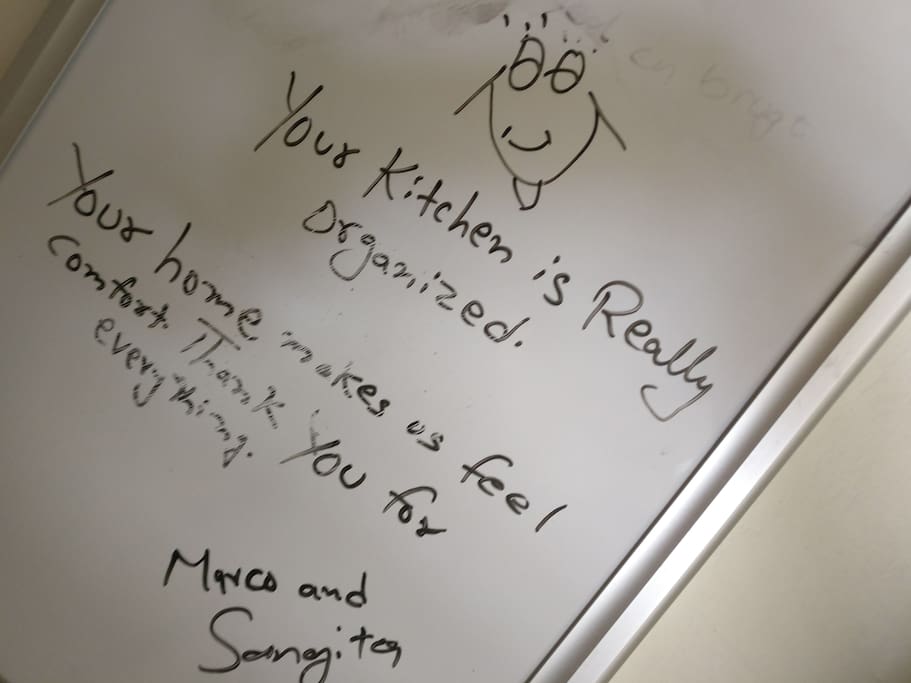 on bridge
Your Kitchen is Really
Organized.
Your home makes us feel
comfort. Thank You for
everything.
Marco and
Sangita